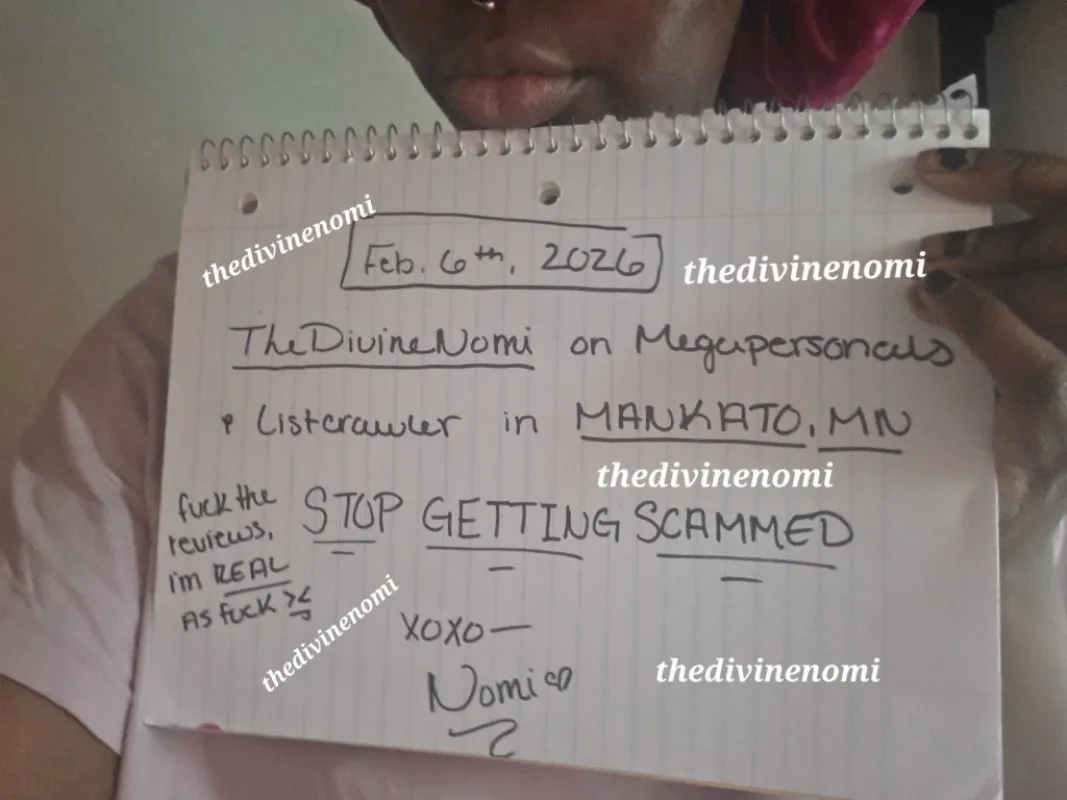 thedivinenomi
Feb. 6th, 2026
thedivinenomi
TheDivineNomi on Megapersonals
& Listcrawler in MANKATO, MN
thedivinenomi
STOP GETTING SCAMMED
fuck the
reviews,
i'm REAL
AS fuck ><
thedivinenomi
xoxo—
Nomi♡
thedivinenomi